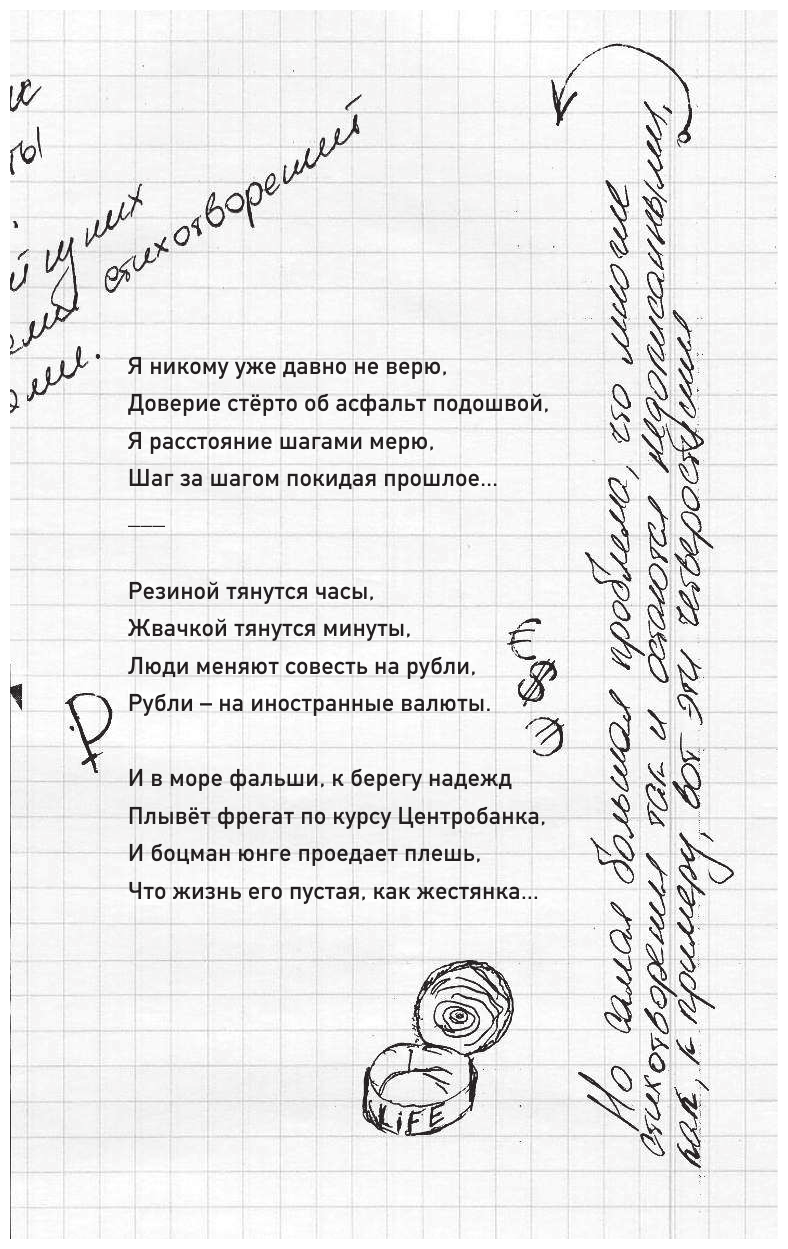 ты
й щ них
стихотворений
ями.
Я никому уже давно не верю,
Доверие стёрто об асфальт подошвой,
Я расстояние шагами мерю,
Шаг за шагом покидая прошлое...
___
Резиной тянутся часы,
Жвачкой тянутся минуты,
Люди меняют совесть на рубли,
Рубли – на иностранные валюты.
И в море фальши, к берегу надежд
Плывёт фрегат по курсу Центробанка,
И боцман юнге проедает плешь,
Что жизнь его пустая, как жестянка...
₽
€
$
LIFE
Но самая большая проблема, что многие
стихотворения так и остаются недописанными,
как, к примеру, вот эти четверостишия